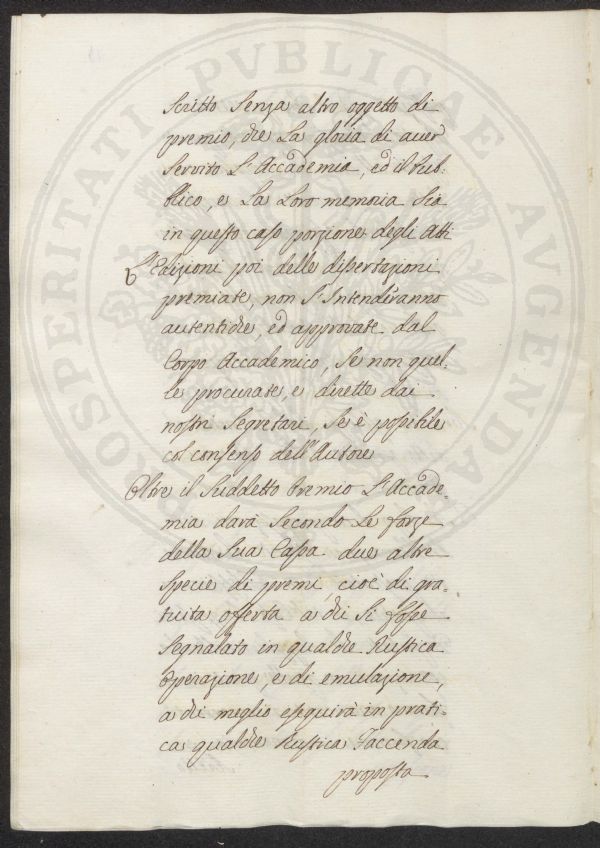 PROSPERITATI PVBLICAE AVGENDAE
scritto senza altro oggetto di
premio, che La gloria di aver
servito L'Accademia, ed il Pub:
blico, e La Loro memoria sia
in questo caso porzione degli Atti
L'Edizioni poi delle dissertazioni
premiate, non s'Intenderanno
autentiche, ed approvate dal
Corpo Accademico, se non quel:
le procurate, e dirette dai
nostri Segretari, se è possibile
col consenso dell'Autore
Oltre il suddetto Premio L'Accade:
mia darà secondo Le forze
della sua Cassa due altre
specie di premi, cioè di gra:
tuita offerta a chi si fosse
segnalato in qualche Rustica
operazione, e di emulazione,
a chi meglio eseguirà in prati:
ca qualche Rustica Faccenda
proposta